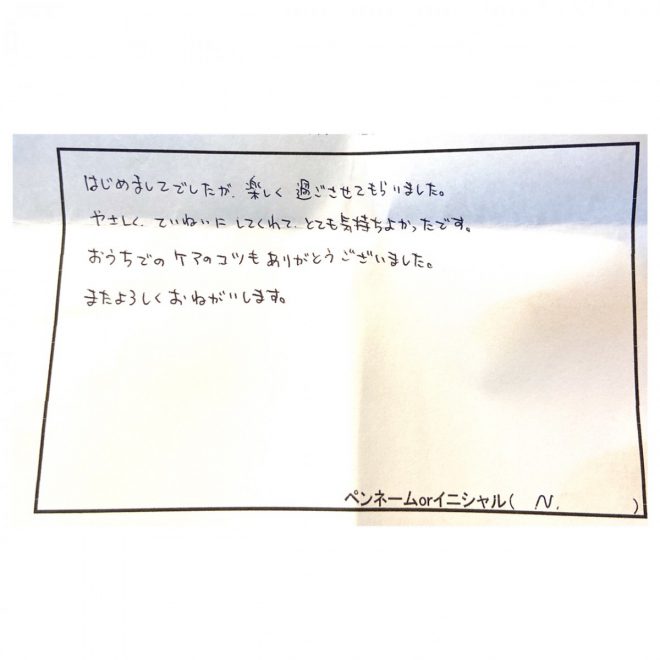 はじめましてでしたが、楽しく 過ごさせてもらいました。
やさしく、ていねいに してくれて、とても気持ちよかったです。
おうちでの ケアのコツも ありがとうございました。
またよろしくおねがいします。
ペンネームorイニシャル( N. )